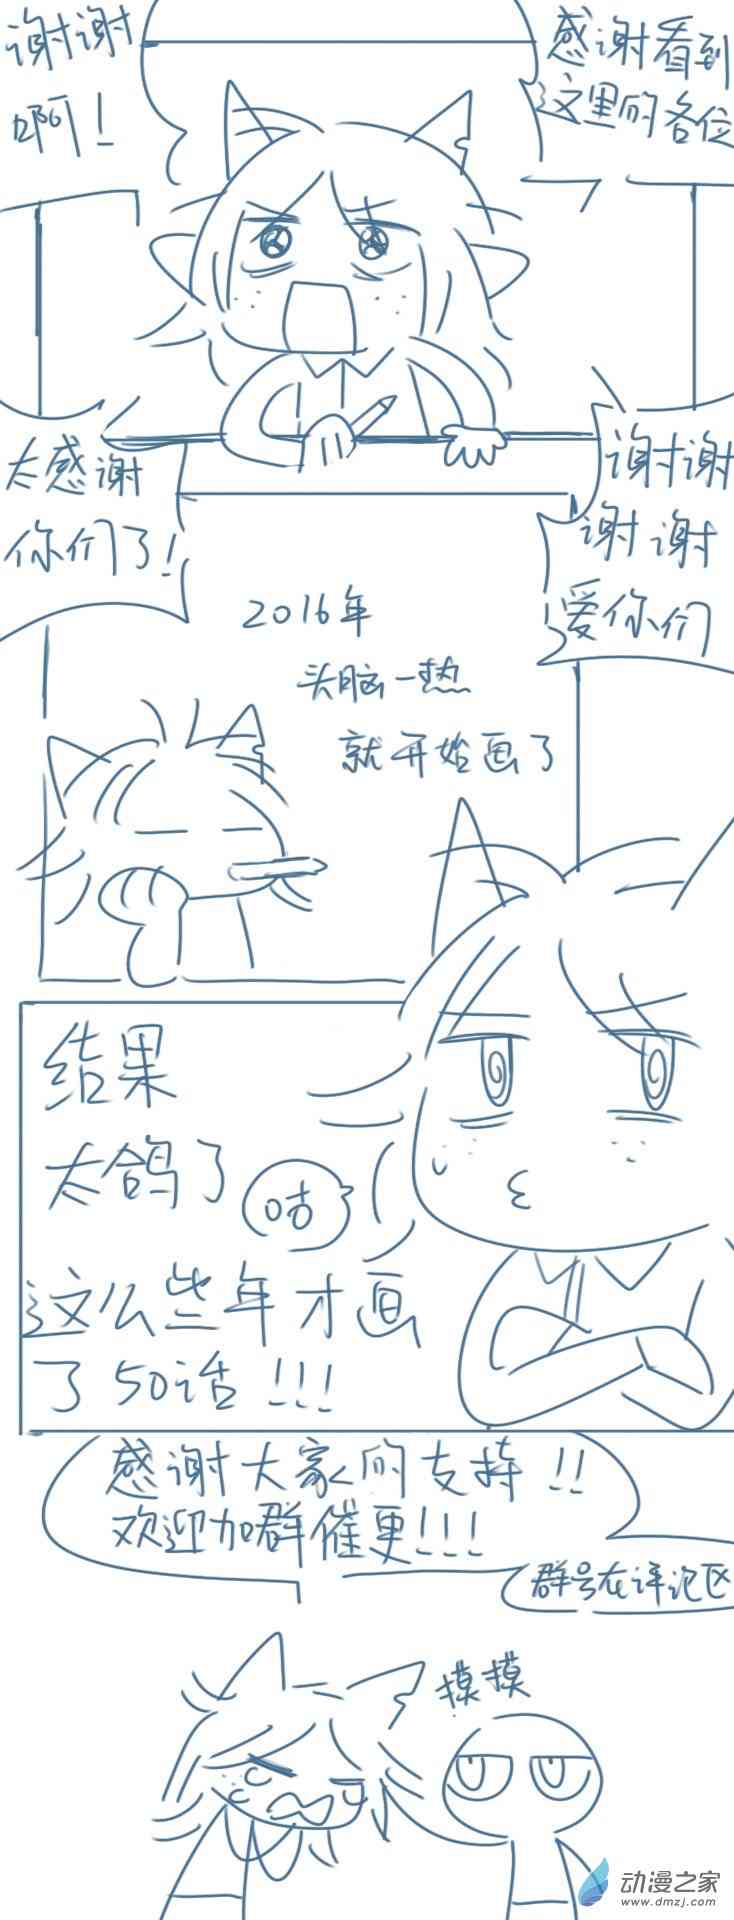 谢谢
啊！
感谢看到
这里的各位
太感谢
你们了！
谢谢
谢谢
爱你们
2016年
头脑一热
就开始画了
结果
太鸽了
咕
这么些年才画
了50话！！！
感谢大家的支持！！
欢迎加群催更！！！
群号在评论区
摸摸
动漫之家
www.dmzj.com